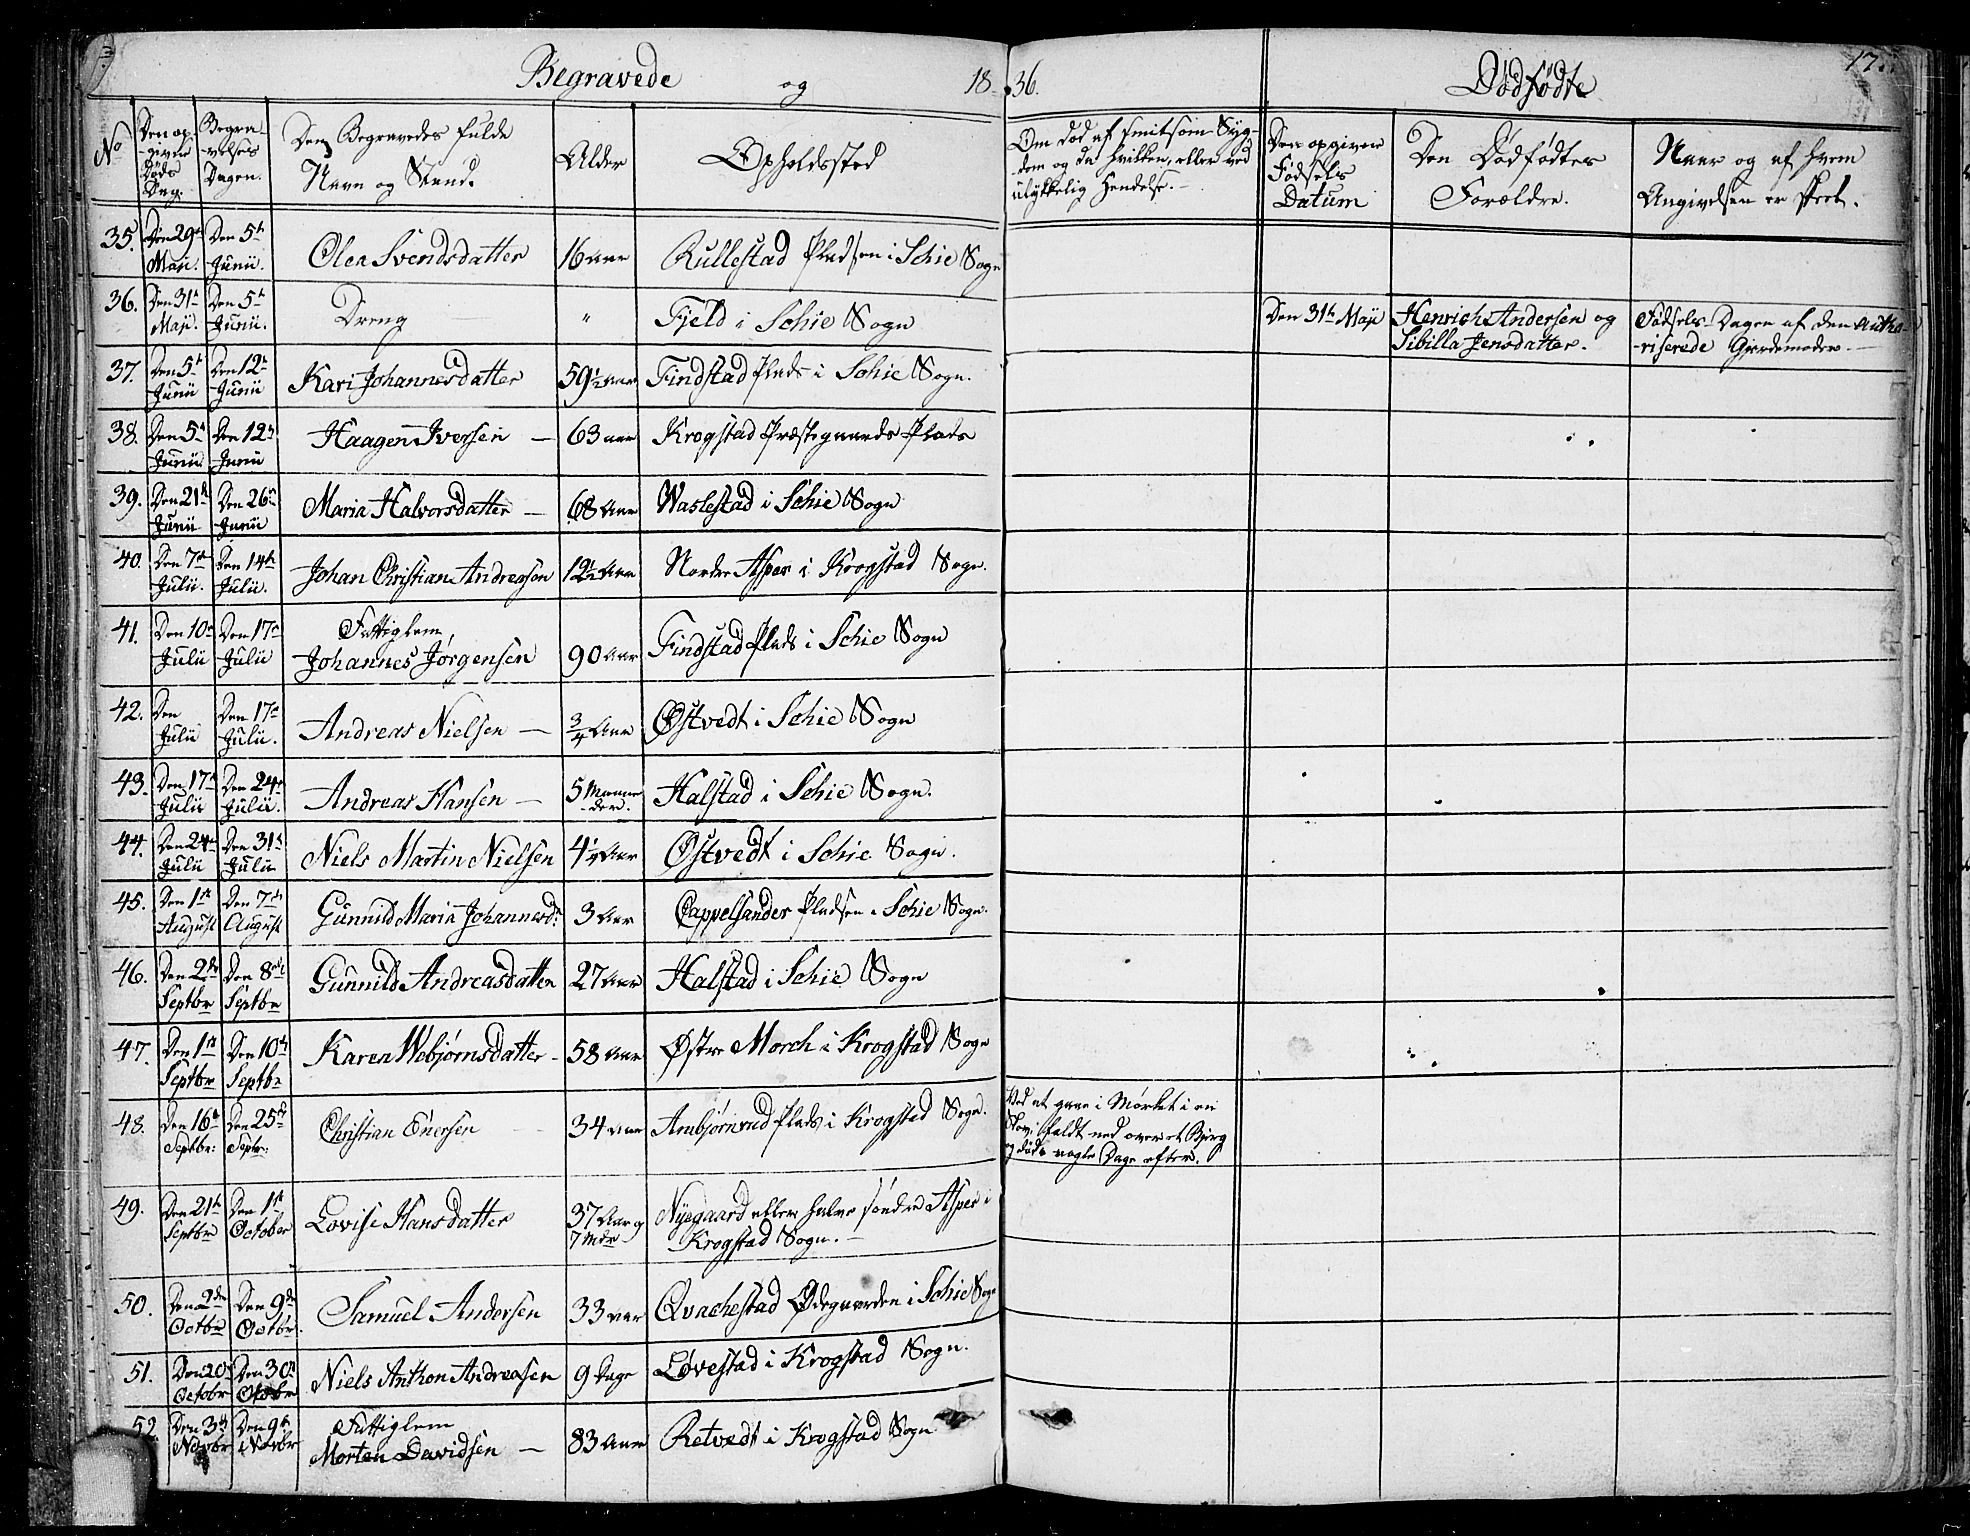 Begravede og 18 36. Dødfødte 17
No
Den op-
givne
Døds
Dag.
Begra-
velses
Dagen.
Den Begravedes fulde
Navn og Stand.
Alder
Opholdssted
Om død af smitsom Syg-
dom og da hvilken, eller ved
ulykkelig Hendelse.
Den opgivne
Fødsels
Datum
Den Dødfødtes
Forældre.
Naar og af hvem
Angivelsen er skeet.
35. Den 29de Maji. Den 5te Junii. Olea Svendsdatter 16 aar Rullestad Pladsen i Schie Sogn
36. Den 31te Maji. Den 5te Junii. Dreng " Fjeld i Schie Sogn Den 31te Maji Henrich Andersen og Sibilla Jensdatter. Fødsels-Dagen af den autho-
riserede Gjordemoder.
37. Den 5te Junii Den 12te Junii Kari Johannesdatter 59½ Aar Findstad Plads i Schie Sogn.
38. Den 5te Junii Den 12te Junii Haagen Iversen — 63 aar Krogstad Præstegaards Plads
39. Den 21de Junii Den 26de Junii Maria Halvorsdatter — 68 Aar Waslestad i Schie Sogn
40. Den 7de Julii. Den 14de Julii. Johan Christian Andreasen 12½ Aar Nordre Asper i Krogstad Sogn.
41. Den 10de Julii Den 17de Julii Fattiglem
Johannes Jørgensen 90 Aar Findstad Plads i Schie Sogn
42. Den Julii Den 17de Julii. Andreas Nielsen — ¾ Aar Østvedt i Schie Sogn
43. Den 17de Julii Den 24de Julii. Andreas Hansen — 5 Maane-
der. Halstad i Schie Sogn.
44. Den 24de Julii Den 31te Julii Niels Martin Nielsen 4¼ Aar Østvedt i Schie Sogn.
45. Den 1ste August Den 7de August Gunnild Maria Johannesdr. 3 Aar Cappelsander Pladsen i Schie Sogn.
46. Den 2den Septbr Den 8de Septbr Gunnild Andreasdatter 27 Aar Halstad i Schie Sogn
47. Den 1ste Septbr Den 10de Septbr Karen Webjørnsdatter - 58 Aar Østre Morch i Krogstad Sogn
48. Den 16de Septbr: Den 25de Septbr: Christian Enersen 34 aar Ambjørnrud Plads i Krogstad Sogn. Ved at gaae i Mørket i en
Skov, faldt ned over et Bjerg
og døde nogle Dage efter.
49. Den 21de Septbr Den 1ste October Lovise Hansdatter 37 Aar og
7 Mdr Nyegaard eller halve søndre Asper i
Krogstad Sogn.
50. Den 2den Octbr Den 9de Octbr. Samuel Andersen 33 aar Qvachestad Ødegaarden i Schie Sogn
51. Den 20de Octobr Den 30te Octobr Niels Anthon Andreasen 9 Dage Løvestad i Krogstad Sogn.
52. Den 3de Novbr Den 9de Novbr Fattiglem
Morten Davidsen — 83 Aar Retvedt i Krogstad Sogn